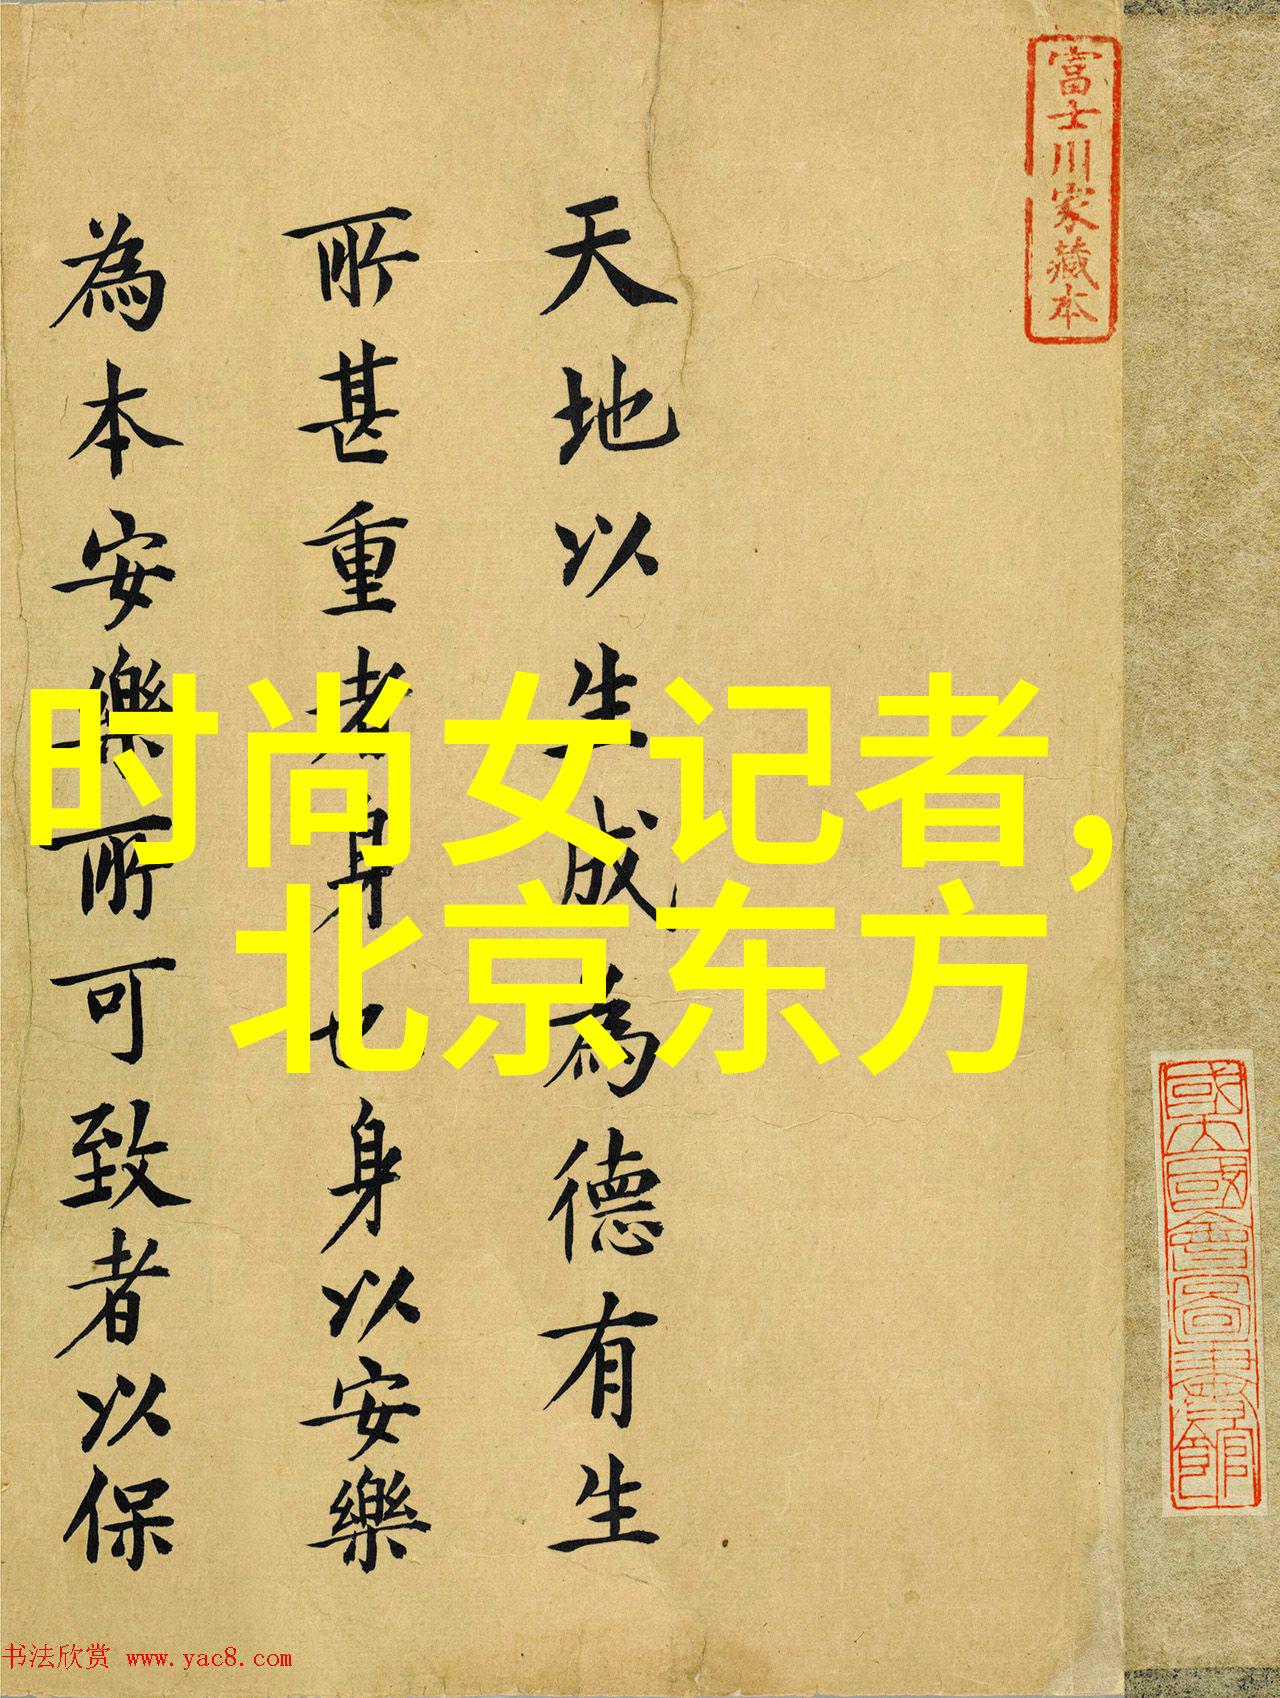 富士川家藏本
國立國會圖書館
天地以生成為德有生
所甚重者身也身以安樂
為本安樂所可致者以保
时尚女记者，
北京东方
书法欣赏 www.yac8.com